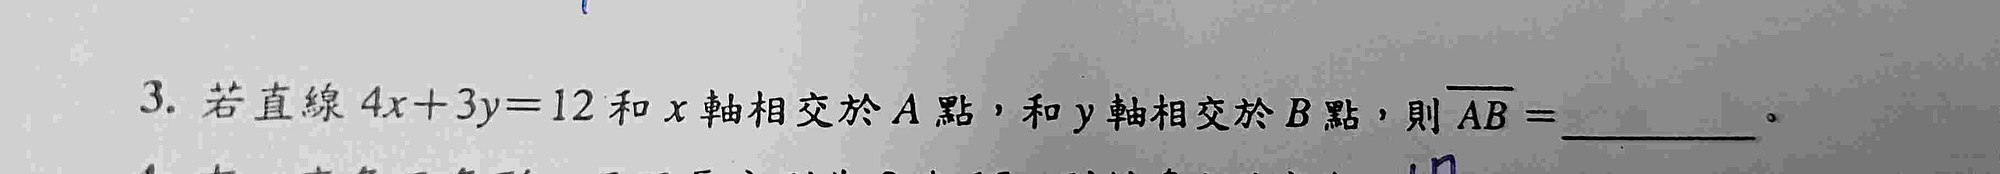 3. 若直線 4x+3y=12 和 x 軸相交於 A 點，和 y 軸相交於 B 點，則 \overline{AB} =________。